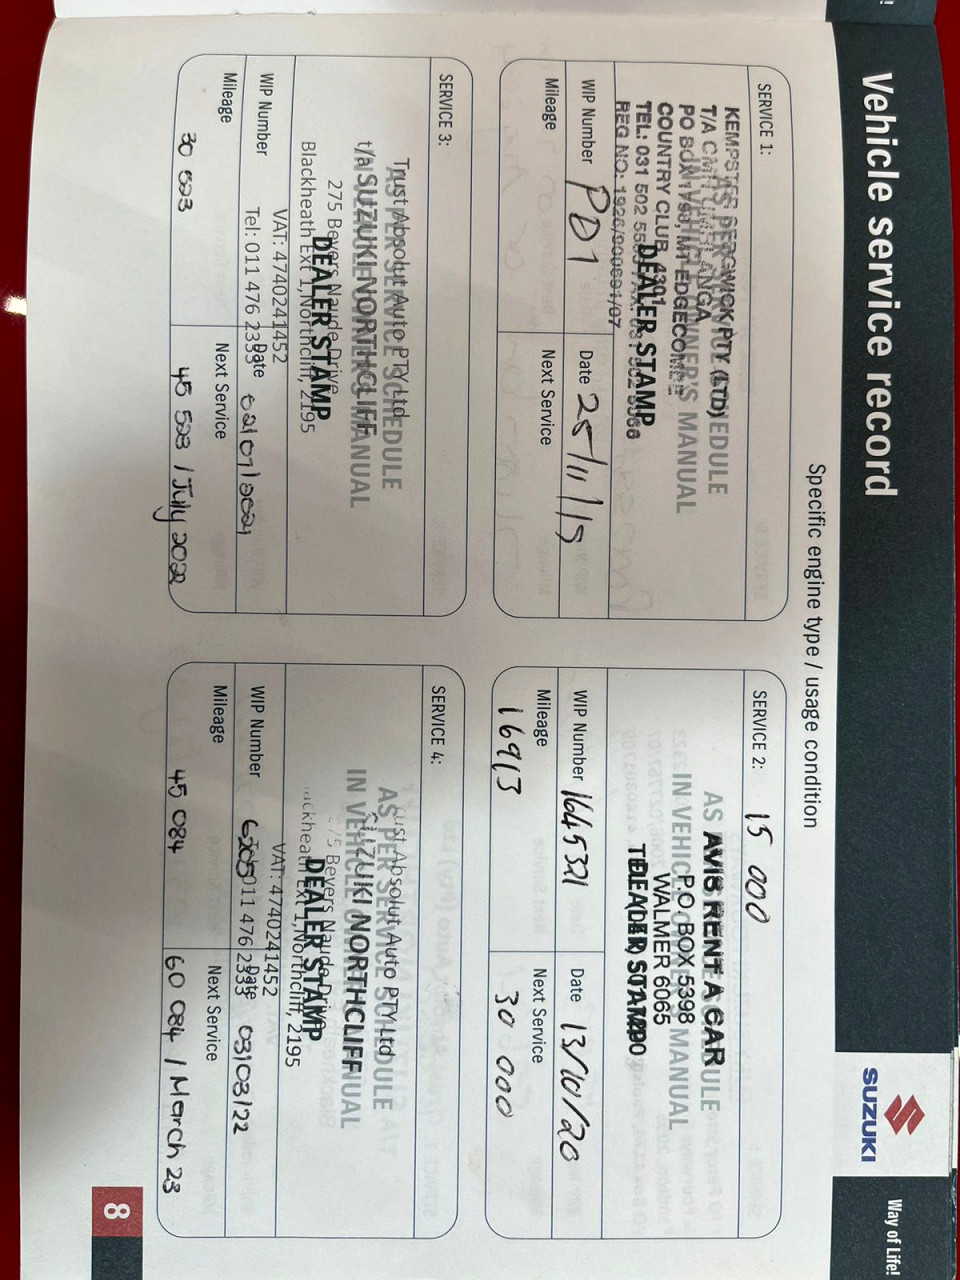 Vehicle service record
SUZUKI
Way of Life!
Specific engine type / usage condition
SERVICE 1:
KEMPSTER SEDGWICK PTY (LTD)
AS PER SERVICE SCHEDULE
IN VEHICLE OWNER'S MANUAL
PO BOX 1793, MT EDGECOMBE
COUNTRY CLUB, 4301
TEL: 031 502 55
DEALER STAMP
REG NO: 1926/000691/07
WIP Number PD1
Date 25/11/19
Mileage
Next Service
SERVICE 2: 15 000
AS PER SERVICE SCHEDULE
AVIS RENT A CAR
IN VEHICLE OWNER'S MANUAL
P.O BOX 5398
WALMER 6065
DEALER STAMP
WIP Number 1645321
Date 13/10/20
Mileage 16913
Next Service 30 000
SERVICE 3:
Trust Absolut Auto PTY Ltd
AS PER SERVICE SCHEDULE
t/a SUZUKI NORTHCLIFF
IN VEHICLE OWNER'S MANUAL
275 Beyers Naude Drive
DEALER STAMP
Blackheath Ext 1, Northcliff, 2195
VAT: 4740241452
Tel: 011 476 2333
WIP Number
Date 02/07/2021
Mileage 30 523
Next Service 45 523 / July 2022
SERVICE 4:
ust Absolut Auto PTY Ltd
AS PER SERVICE SCHEDULE
SUZUKI NORTHCLIFF
IN VEHICLE OWNER'S MANUAL
75 Beyers Naude Drive
DEALER STAMP
ackheath Ext 1, Northcliff, 2195
VAT: 4740241452
011 476 2333
WIP Number
Date 03/03/22
Mileage 45 084
Next Service 60 084 / March 23
8